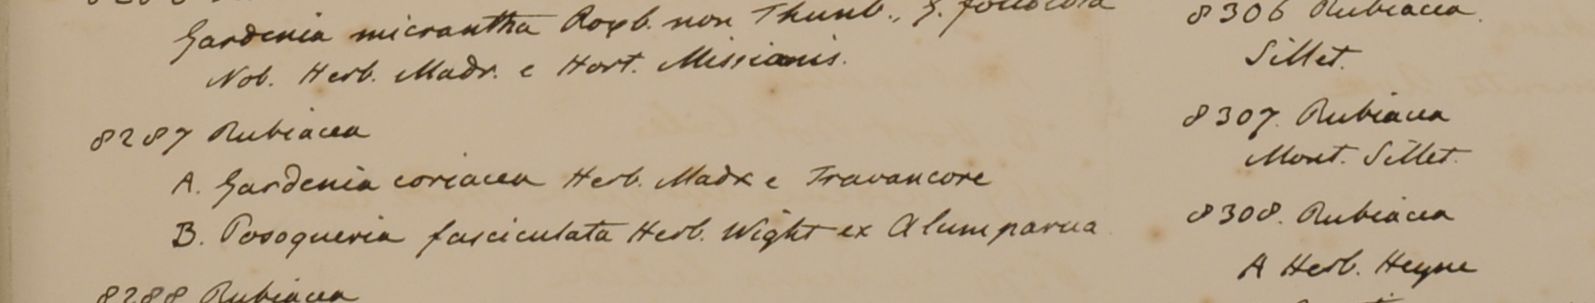 Gardenia micrantha Roxb. non Thunb., G.
Nob. Herb. Madr. e Hort. Missionis.
8287 Rubiacea
A. Gardenia coriacea Herb. Madr e Travancore
B. Posoqueria fasciculata Herb. Wight ex Alumparva
8288 Rubiacea
8306 Rubiacea.
Sillet.
8307. Rubiacea
Mont. Sillet.
8308. Rubiacea
A Herb. Heyne